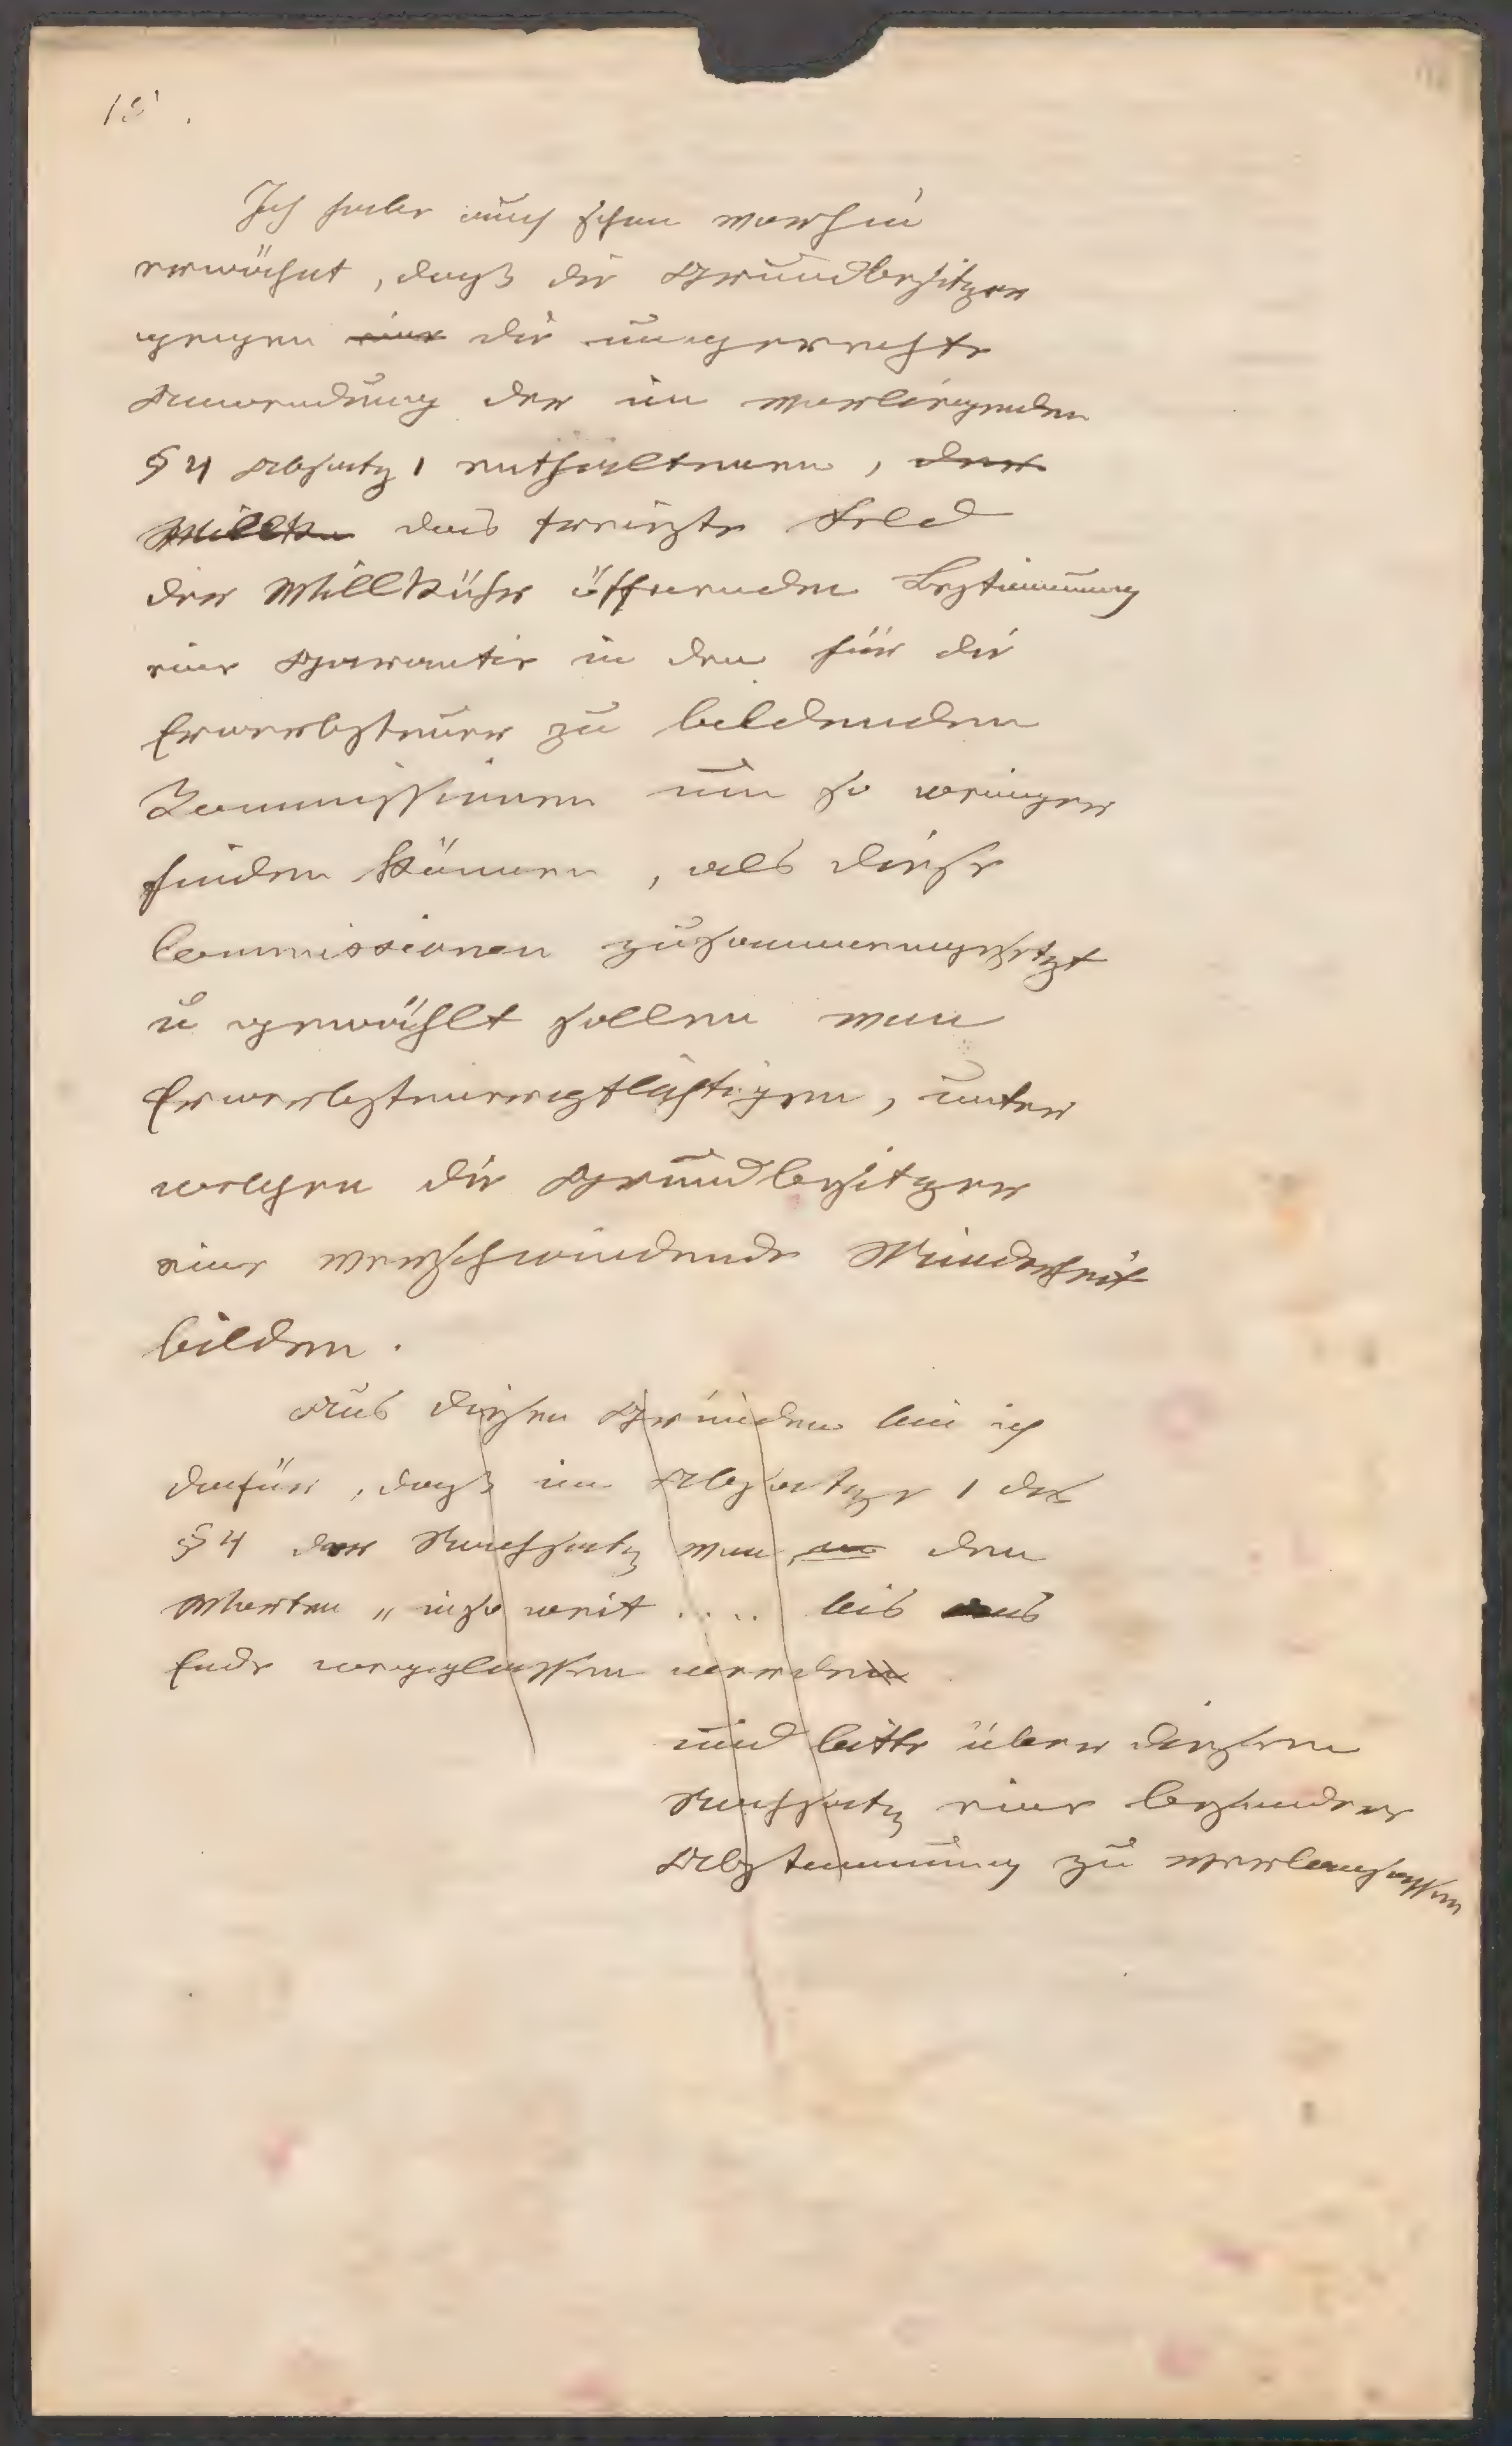 Ich habe auch schon vorhin
erwähnt, daß die Grundbesitzer
gegen eine die ungerechte
Anwendung der im vorliegenden
§ 4 Absatz 1 enthaltenen, der
Willkü das freieste Feld
der Willkühr öffnenden Bestimmung
eine Garantie in den für die
Erwerbsteuer zu bildenden
Commissionen um so weniger
finden können, als diese
Commissionen zusammengesetzt
u gewählt sollen von
Erwerbsteuerpflichtigen, unter
welchen die Grundbesitzer
eine verschwindende Minderheit
bilden.
Aus diesen Gründen bin ich
dafür, daß im Absatze 1 des
§ 4 der Nachsatz von den
Worten „ insoweit .... bis
Ende weggelassen werden
und bitte über diesen
Nachsatz eine besondere
Abstimmung zu veranlassen